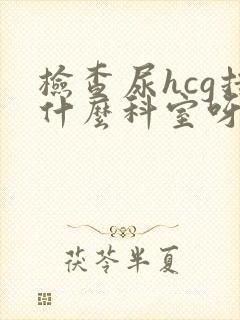 檢查尿hcg挂
什麼科室呀
茯苓半夏